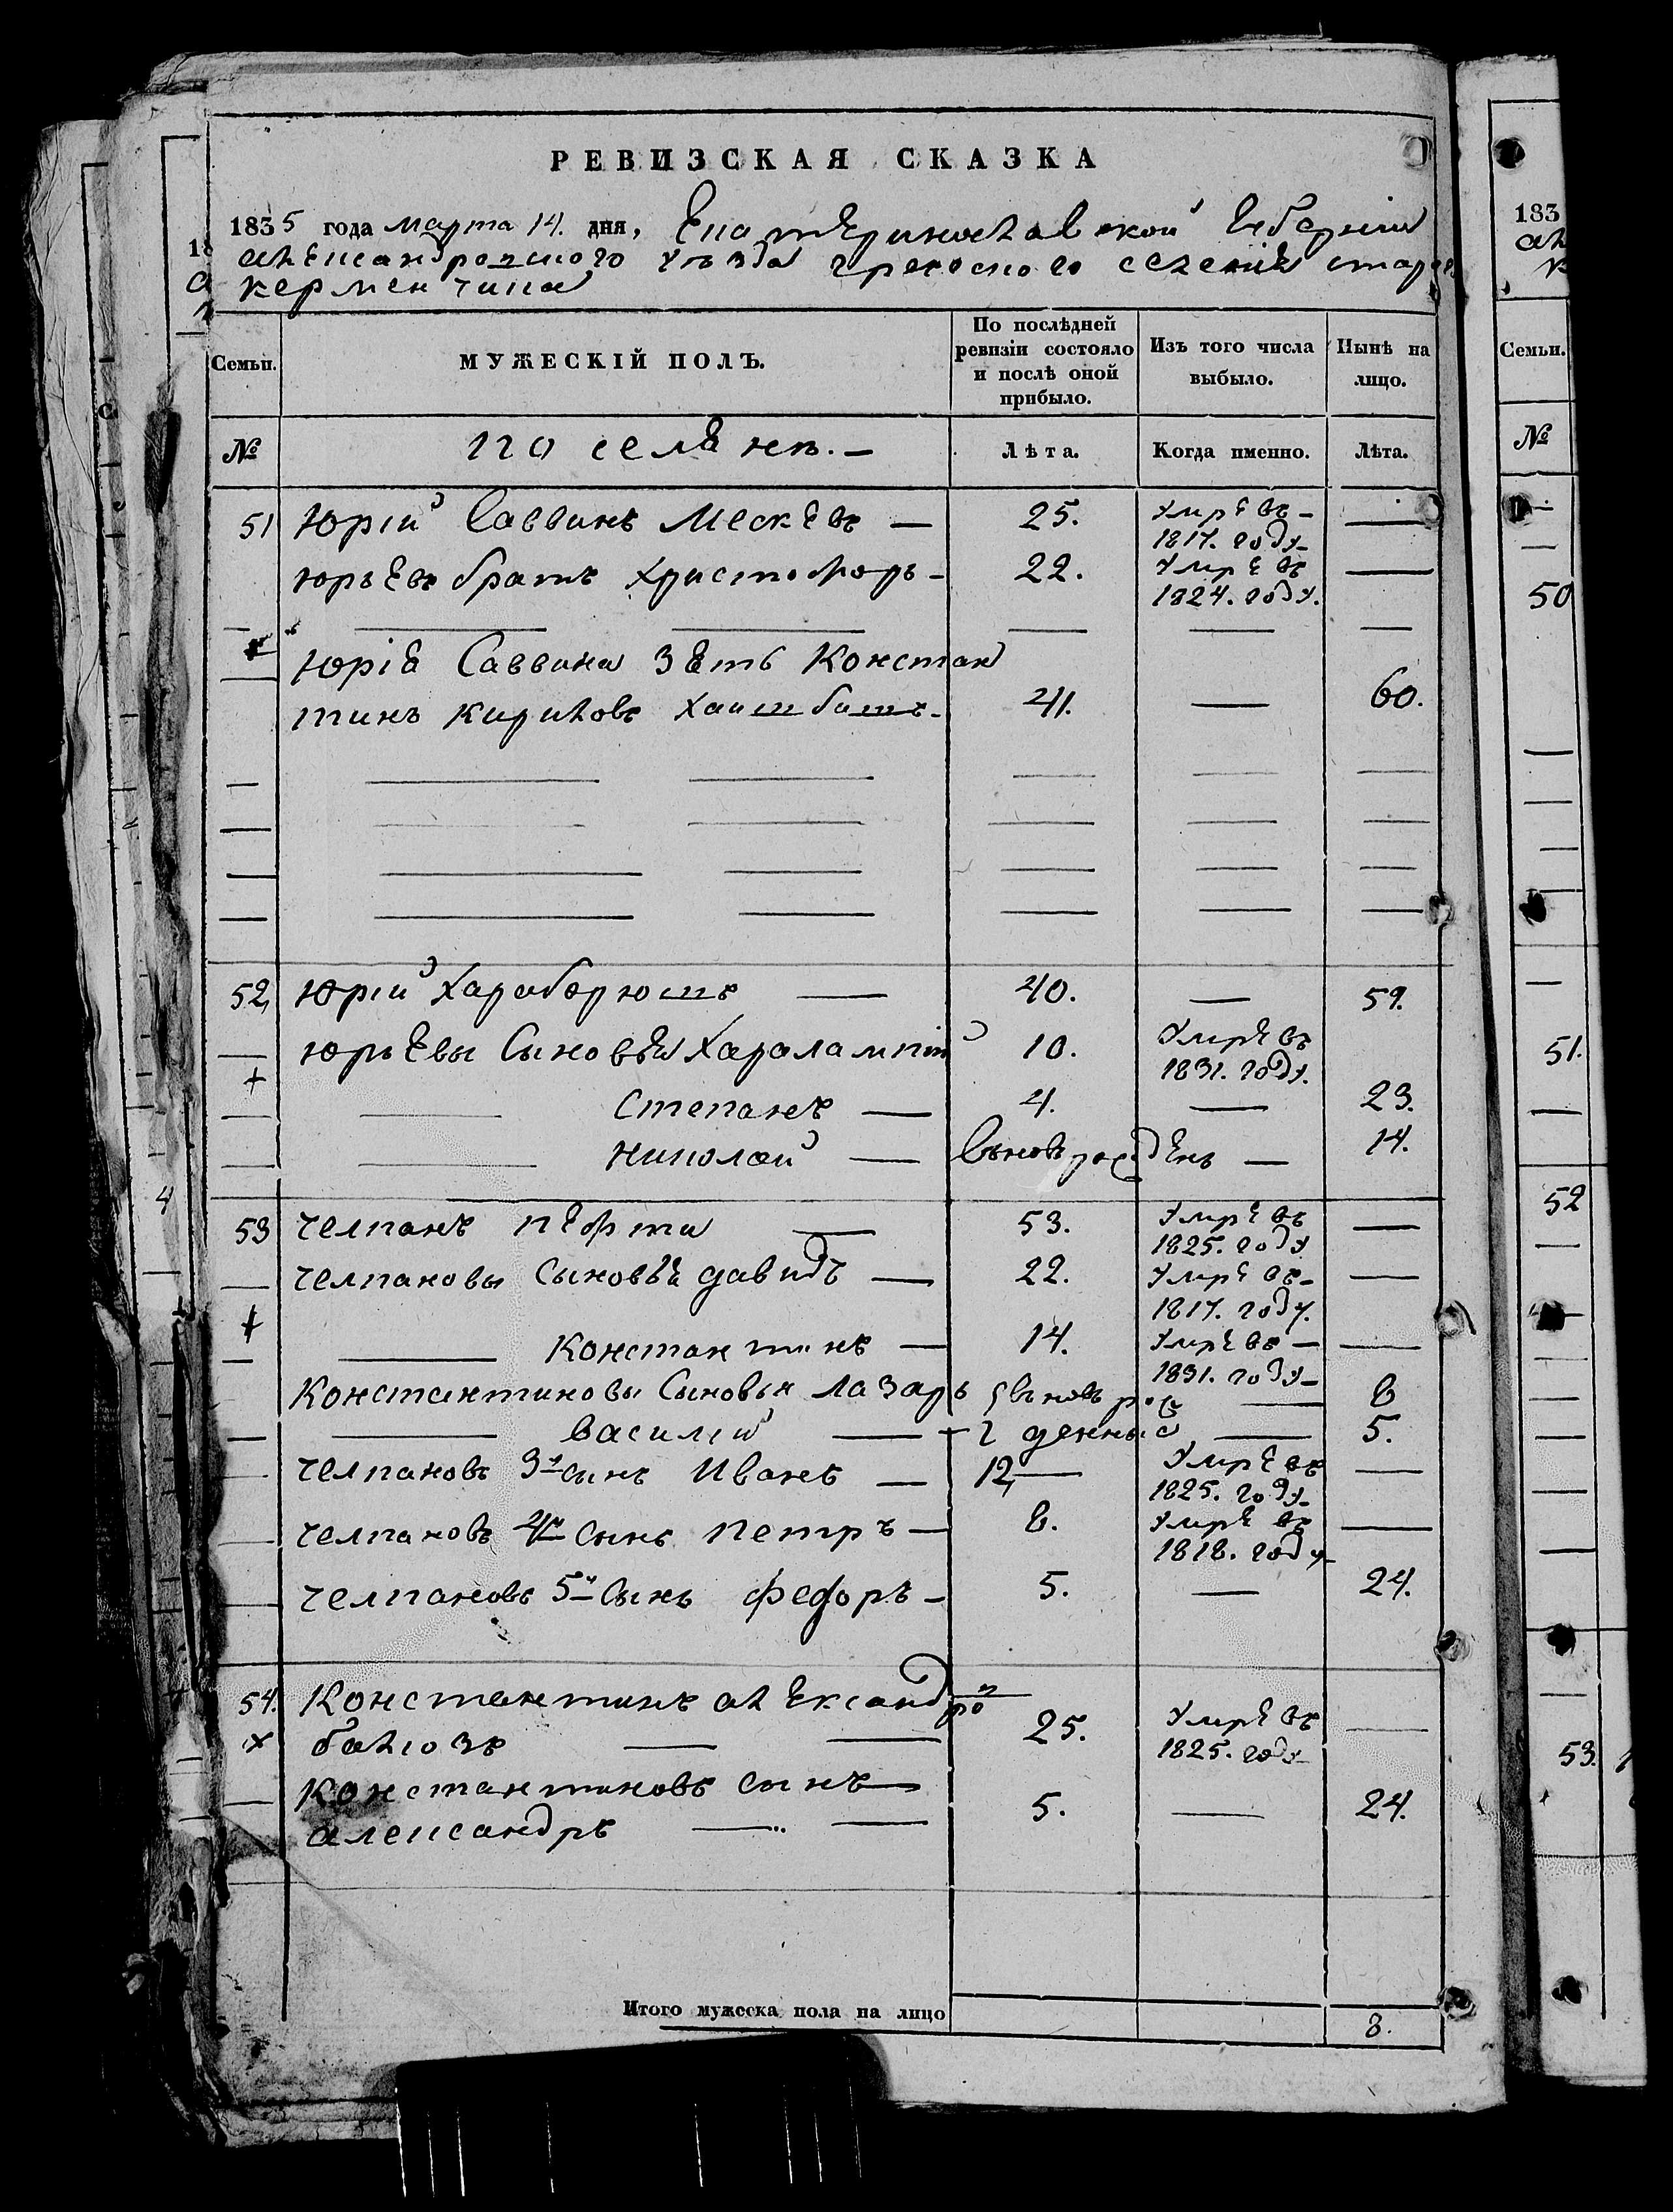 РЕВИЗСКАЯ СКАЗКА
1835 года марта 14. дня, Екатеринославской губернии
александровского уезда греческого селения старо
керменчика
Семьи. МУЖЕСКІЙ ПОЛЪ. По послѣдней ревизіи состояло и послѣ оной прибыло. Изъ того числа выбыло. Нынѣ на лицо.
№ поселянъ.— Лѣта. Когда именно. Лѣта.
51 Юрій Саввинъ Мескевъ — 25. Умре въ — 1817. году —
юрьевъ братъ христофоръ — 22. Умре въ 1824. году. —
Юрія Саввина зять Констан
тинъ кириловъ 41. — 60.
52 Юрій Хараборюшъ — 40. — 59.
юрьевы Сыновья Харалампій 10. Умре въ 1831. году.
Степанъ — 4. — 23.
николай — вновь рожденъ — 14.
53 челпанъ пефти — 53. Умре въ 1825. году —
челпановы Сыновья давидъ — 22. Умре въ — 1817. году. —
Константинъ — 14. Умре въ — 1831. году —
Константиновы Сыновья лазарь вновь рож — 8
василій — денные — 5.
челпановъ 3й сынъ Иванъ — 12 — Умре въ 1825. году —
челпановъ 4й сынъ петръ — 8. умре въ 1818. году —
челпановъ 5й Сынъ федоръ — 5. — 24.
54. Константинъ александро
балюзъ — 25. Умре въ 1825. году —
Константиновъ сынъ
александръ — 5. — 24.
Итого мужеска пола на лицо 8.
183
Семьи.
№
50
51.
52
53.